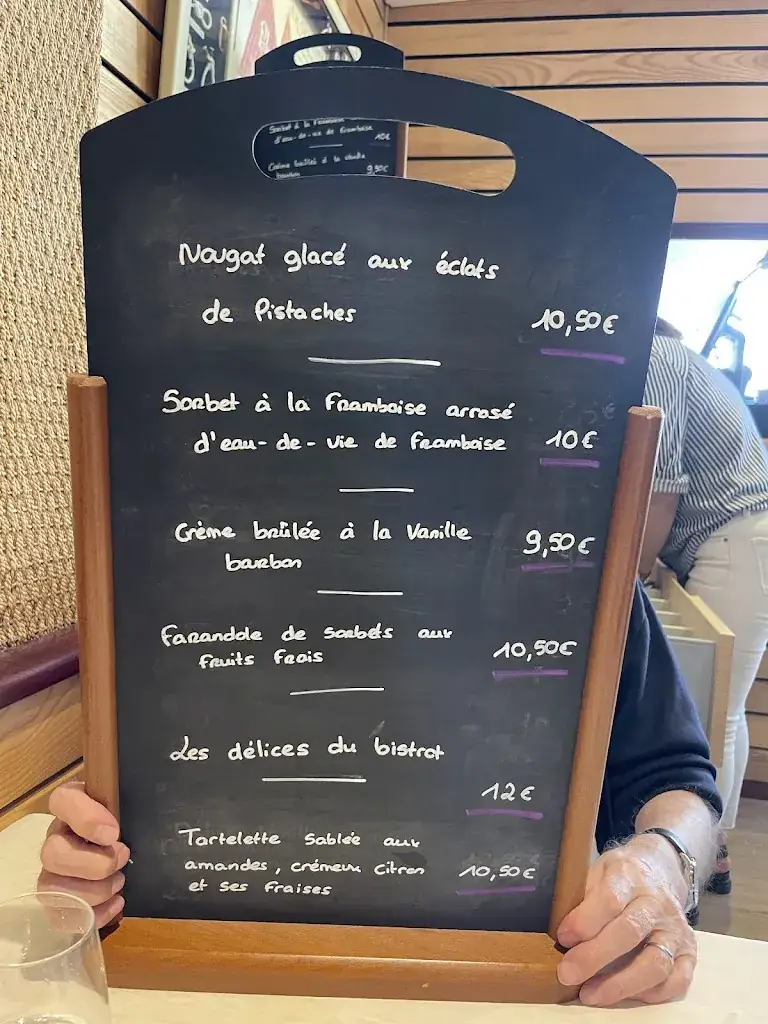 Sorbet à la Framboise
d'eau-de-vie de framboise 10€
Crème brûlée à la Vanille
bourbon 9,50€
Nougat glacé aux éclats
de Pistaches 10,50€
Sorbet à la Framboise arrosé
d'eau-de-vie de framboise 10€
Crème brûlée à la Vanille 9,50€
bourbon
Farandole de sorbets aux
fruits frais 10,50€
Les délices du bistrot
12€
Tartelette sablée aux
amandes, crémeux citron 10,50€
et ses fraises